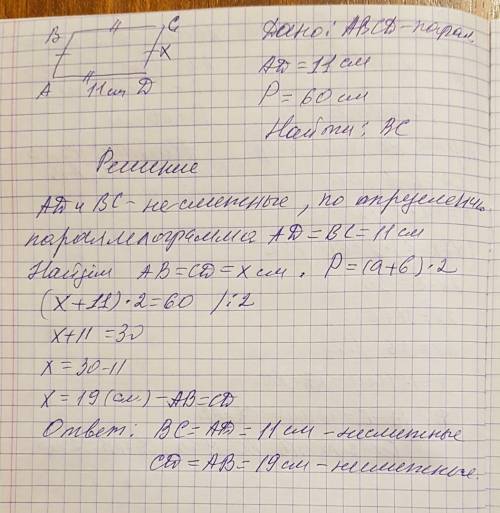 B C
X
A 11 см D
Дано: ABCD - парал.
AD = 11 см
P = 60 см
Найти: BC
Решение
AD и BC - несмежные, по определению
параллелограмма AD = BC = 11 см
Найдём AB = CD = x см. P = (a + b) · 2
(x + 11) · 2 = 60 /: 2
x + 11 = 30
x = 30 - 11
x = 19 (см) - AB = CD
Ответ: BC = AD = 11 см - несмежные
CD = AB = 19 см - несмежные.